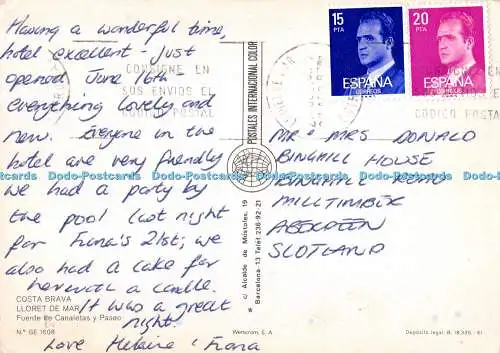 Having a wonderful time,
hotel excellent - just
opened June 16th
everything lovely and
new. Everyone in the
hotel are very friendly
we had a party by
the pool last night
for Fiona's 21st; we
also had a cake for
her a candle.
It was a great
night.
Love Helaine & Fiona
COSTA BRAVA
LLORET DE MAR
Fuente de Canaletas y Paseo
N.° GE 1608
Wemcrom, S. A.
Depósito legal: B. 18.335 - 81
POSTALES INTERNACIONAL COLOR
c/ Alcalde de Móstoles, 19
Barcelona-13 Telef. 236-92-21
CONSIGNE EN
SUS ENVIOS EL
CODIGO POSTAL
15
PTA
ESPAÑA
CORREOS
20
PTA
ESPAÑA
CORREOS
EN
EL
CODIGO POSTAL
MR & MRS DONALD
BINGHILL HOUSE
BINGHILL ROAD
MILLTIMBER
ABERDEEN
SCOTLAND
Dodo-Postcards Dodo-Postcards Dodo-Postcards Dodo-Postcards Dodo-Postcards